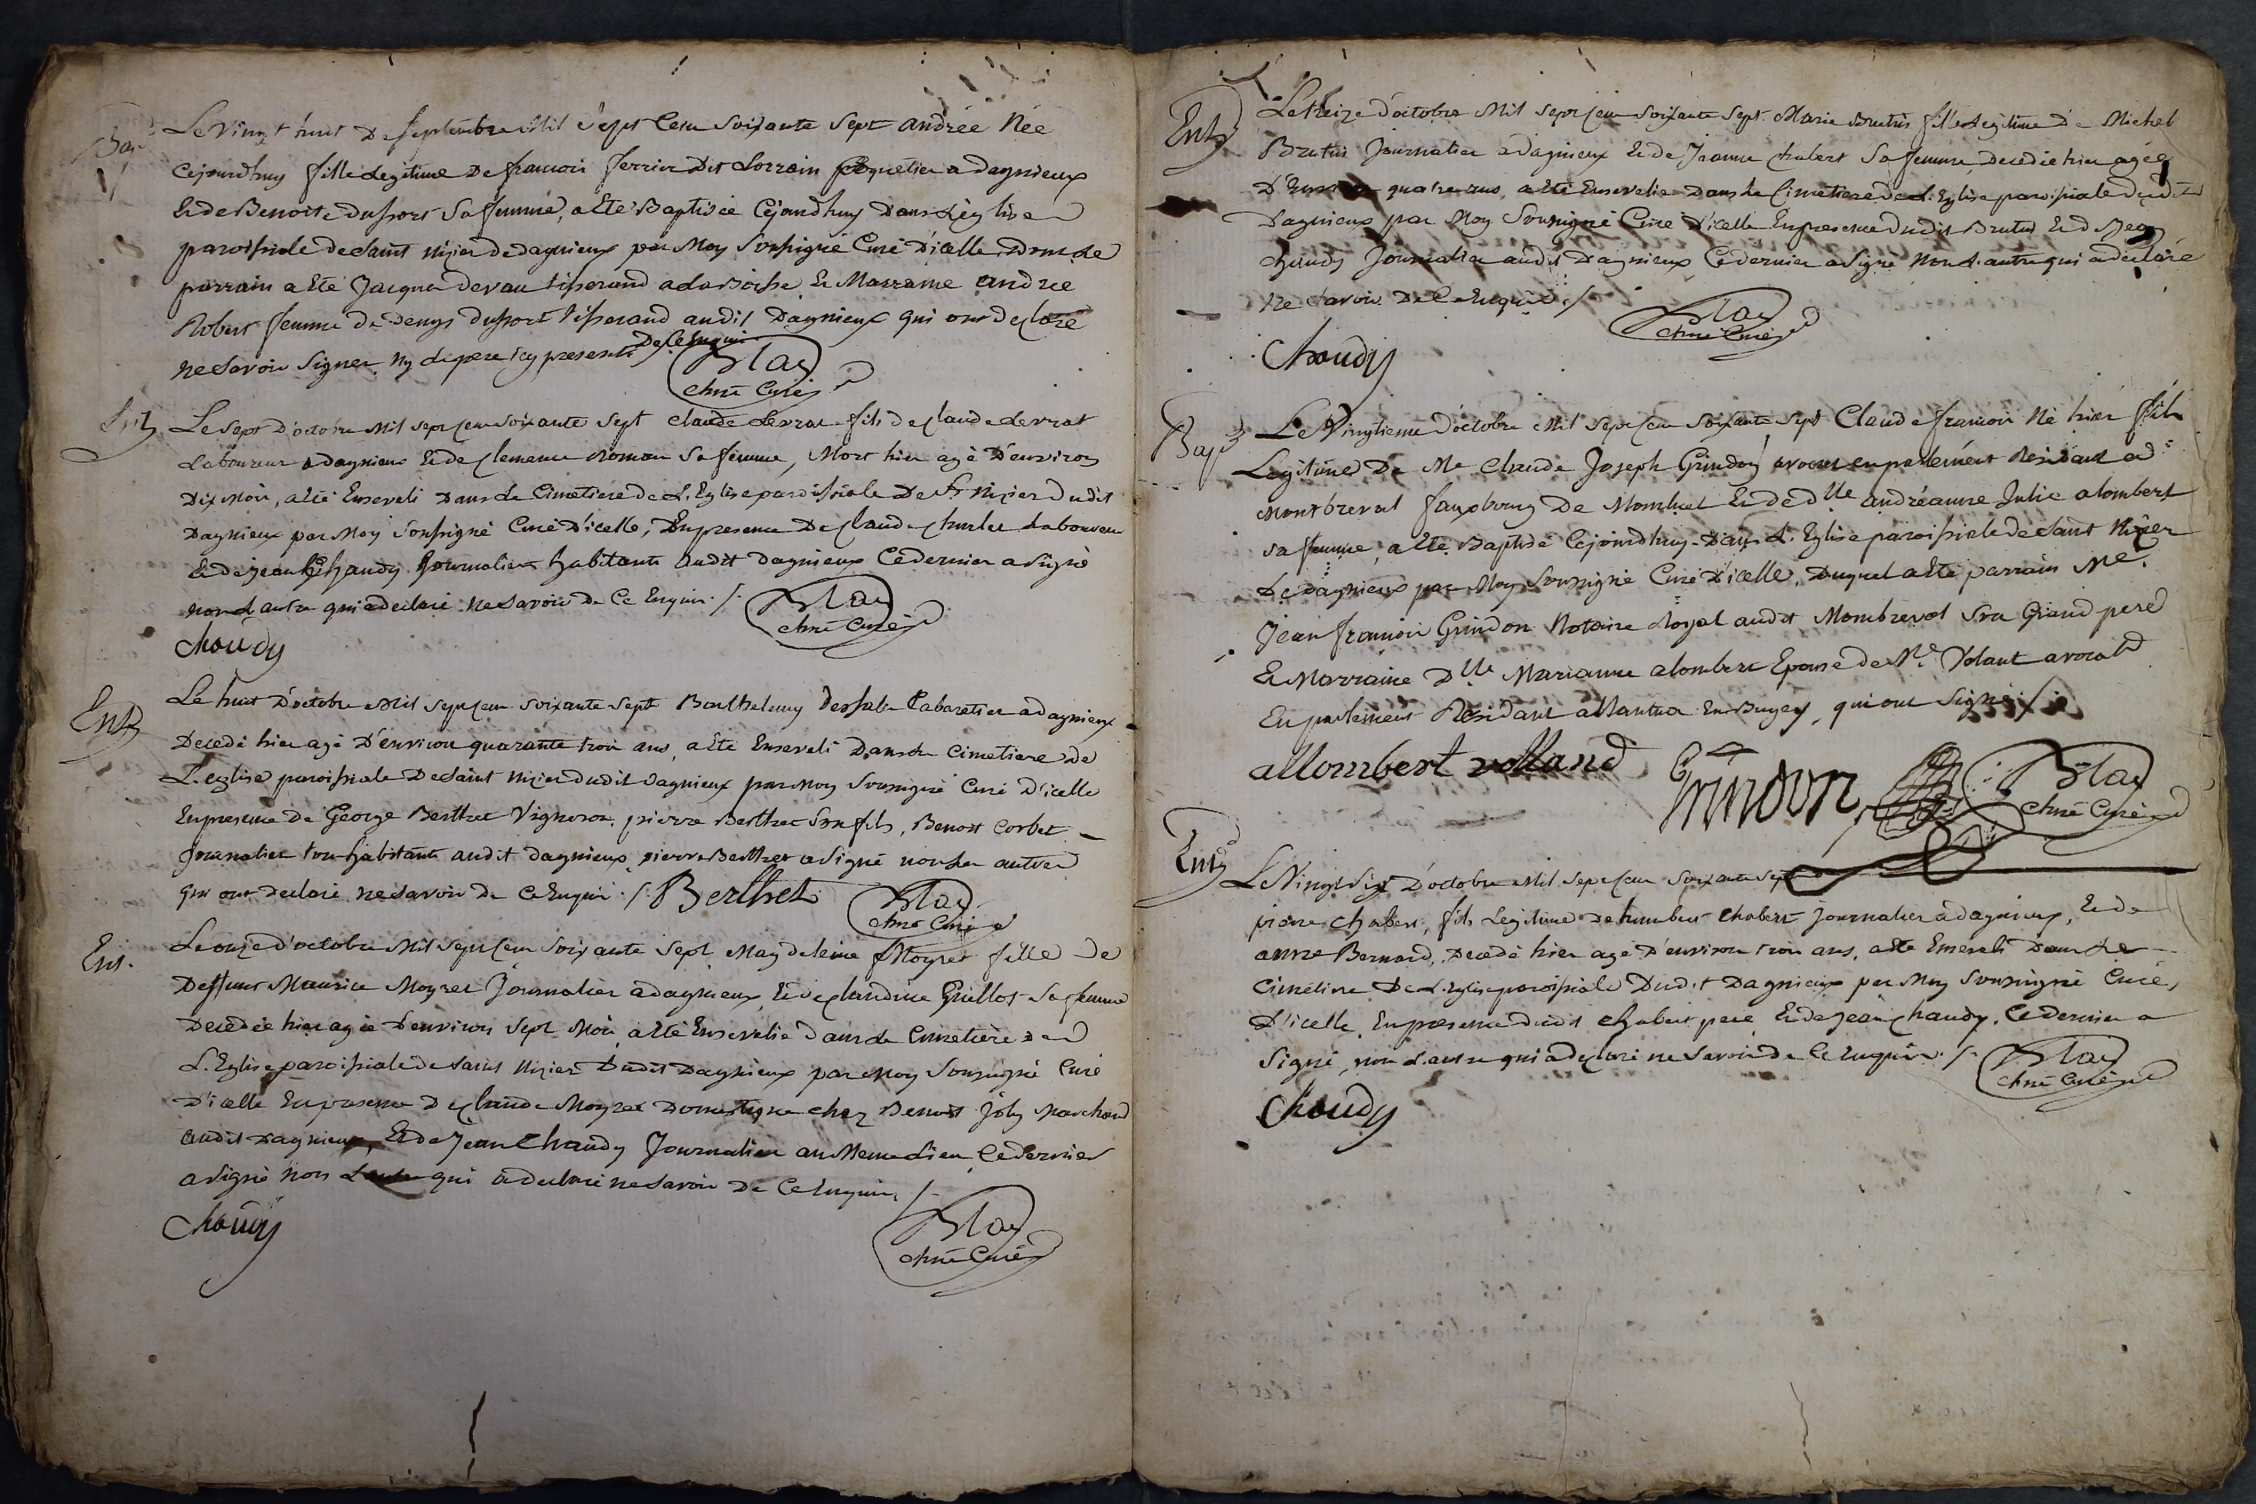 Bap.
Le Vingt huit De Septembre Mil Sept Cens Soixante Sept andrée Née
Cejourdhuy fille Legitime De francois ferrier Dit Lorrain Coquetier a dagnieux
Et de Benoite Dufort Sa femme, a Eté Baptisée Cejourdhuy Dans L'eglise
paroissiale de Saint nizier de dagnieux par Moy Soussigné Curé D'icelle Dont le
parrain a Eté Jacques devau tisserand a la Boisse Et Marraine andrée
Robert femme De denys Dufort tisserand audit Dagnieux qui ont declaré
ne Savoir Signer Ny le pere icy present De Ce Enquis
Blay
Curé
Le Sept D'octobre Mil Sept Cens Soixante Sept Claude Levrat fils de Claude Levrat
Laboureur a dagnieux Et de Clemence Roman Sa femme, Mort hier agé D'environ
Dix Mois, a Eté Enseveli Dans Le Cimetiere de L'Eglise paroissiale De St Nizier dudit
Dagnieux par Moy Soussigné Curé D'icelle, En presence De Claude Laboureur
Et de jean Chaudy Journalier habitants audit dagnieux Ce dernier a Signé
non L'autre qui a declaré ne Savoir De Ce Enquis ./.
Blay
Curé
Choudy
Ent
Le huit D'octobre Mil Sept Cens Soixante Sept Barthelemy Cabaretier a dagnieux
Decedé hier agé D'environ quarante trois ans, a Eté Enseveli Dans Le Cimetiere De
L'eglise paroissiale De Saint nizier dudit Dagnieux par Moy Soussigné Curé D'icelle
En presence de George Berthet Vigneron, pierre Berthet Son fils, Benoit Corbet
Journalier tous habitants audit dagnieux, pierre Berthet a Signé non Les autres
qui ont declaré ne Savoir de Ce Enquis ./. Berthet
Blay
Curé
Ent.
Le onze d'octobre Mil Sept Cens Soixante Sept Magdeleine Moyret fille de
Deffunt Maurice Moyret Journalier a dagnieux Et de Claudine Guillot Sa femme
Decedée hier agée D'environ Sept Mois, a Eté Ensevelie dans Le Cimetière de
L'Eglise paroissiale de Saint Nizier Dudit Dagnieux par Moy Soussigné Curé
D'icelle En presence De Claude Moyret Domestique chez Benoit joly Marchand
audit Dagnieux, Et de Jean Chaudy Journalier au Meme Lieu, Ce dernier
a Signé non L'autre qui a declaré ne Savoir De Ce Enquis ./.
Choudy
Blay
Curé
Ent
Le treize d'octobre Mil Sept Cens Soixante Sept Marie Brutus fille Legitime De Michel
Brutus Journalier a dagnieux Et de Jeanne Chabert Sa femme, Decedée hier agée
D'Environ quatre ans, a Eté Ensevelie Dans Le Cimetiere de L'Eglise paroissiale dudit
Dagnieux par Moy Soussigné Curé D'icelle En presence dudit Brutus Et de Jean
Chaudy Journalier audit Dagnieux, Ce dernier a Signé Non L'autre qui a declaré
Ne Savoir De Ce Enquis ./.
Blay
Curé
Choudy
Bap
Le Vingtieme d'octobre Mil Sept Cens Soixante Sept Claude francois Né hier fils
Legitime De Me Claude Joseph Grindon avocat en parlement Residant a
Montbreval fauxbourg De Monluel Et de Dlle andréanne Julie alombert
Sa femme, a Eté Baptisé Cejourdhuy Dans L'Eglise paroissiale de Saint Nizier
De dagnieux par Moy Soussigné Curé D'icelle, Duquel a Eté parrain Me.
Jean francois Grindon Notaire Royal audit Mombreval Son Grand pere
Et Marraine Dlle Marianne alombert Epouse de Me Volant avocat
En parlement Residant a En Bugey, qui ont Signé ./.
allombert volland
Grindon
Blay
Curé
Ent
Le Vingt Six D'octobre Mil Sept Cens Soixante Sept
pierre Chabert, fils Legitime de humbert Chabert Journalier a dagnieux, Et de
anne Bernard, Decedé hier agé D'environ trois ans, a Eté Enseveli Dans Le
Cimetiere De L'Eglise paroissiale Dudit Dagnieux par Moy Soussigné Curé,
D'icelle, En presence dudit Chabert pere Et de Jean Chaudy, Ce dernier a
Signé, non L'autre qui a declaré ne Savoir de Ce Enquis ./.
Blay
Curé
Choudy